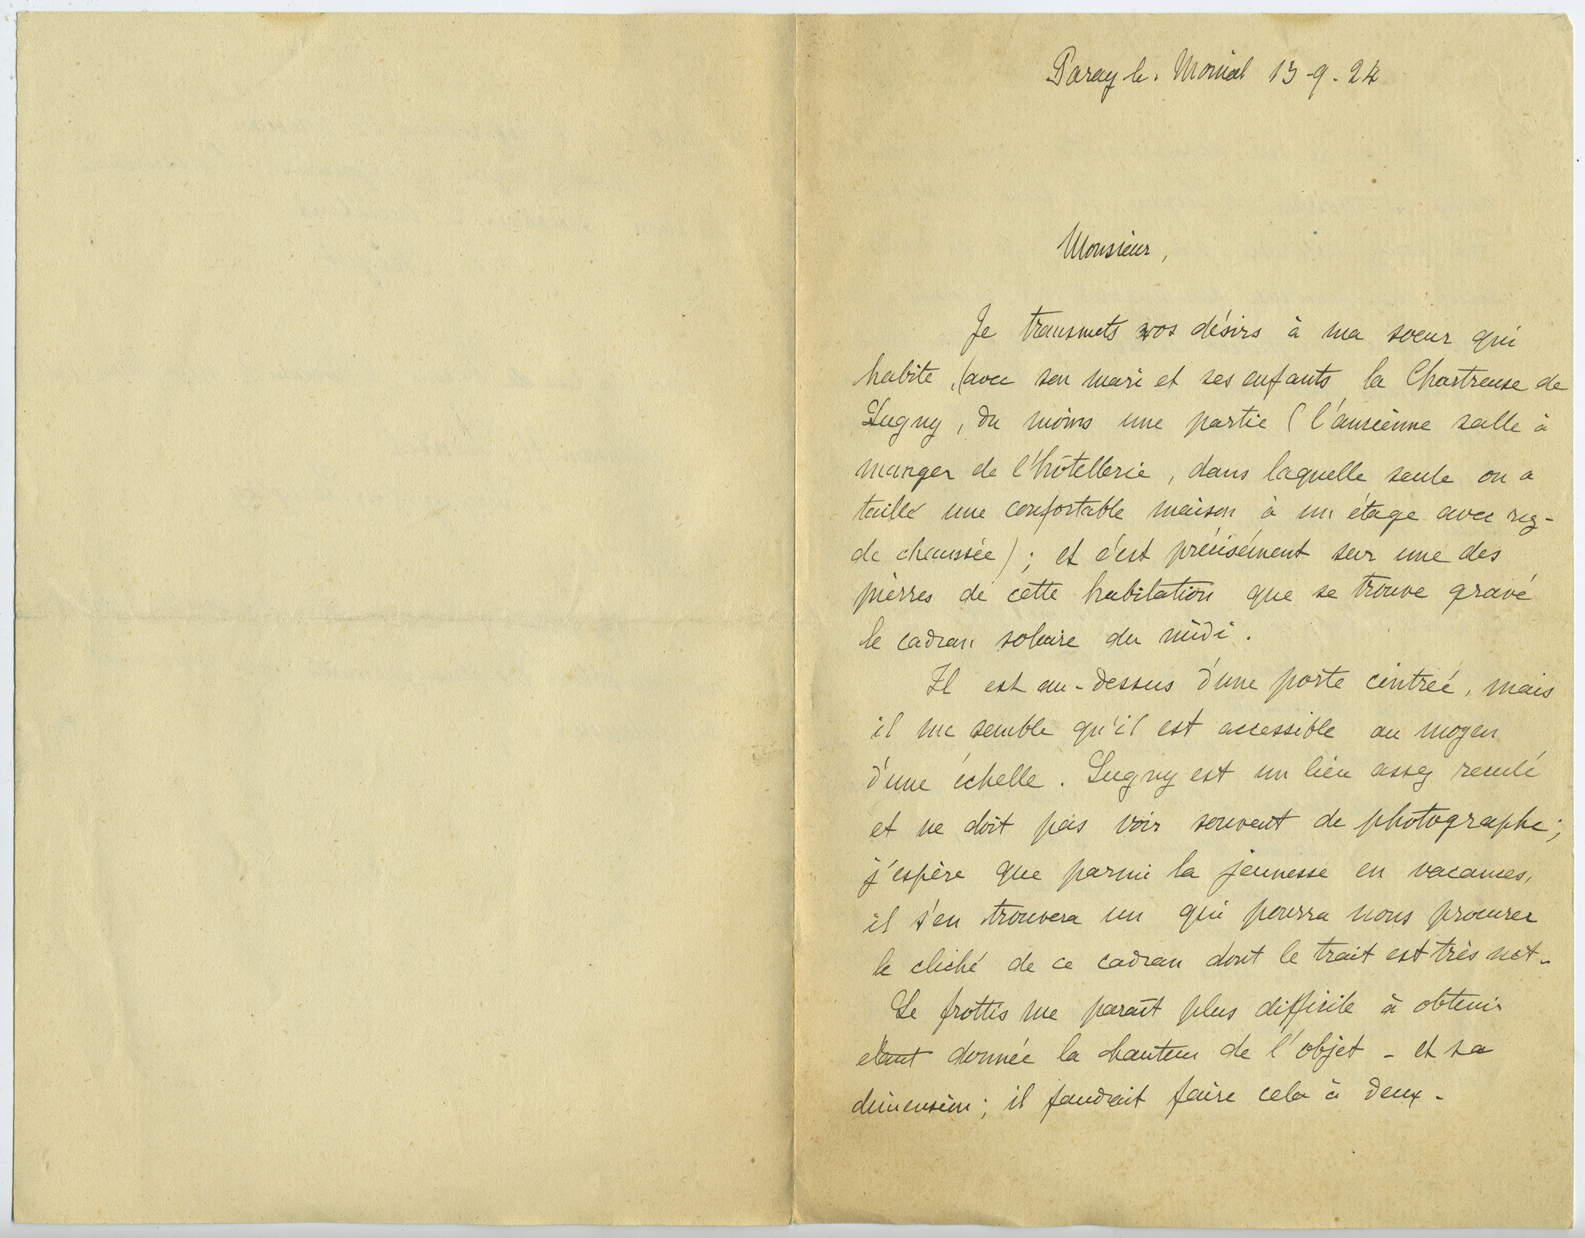 Paray le. Monial 13-9-24
Monsieur,
Je transmets vos désirs à ma soeur qui
habite, (avec son mari et ses enfants la Chartreuse de
Lugny, du moins une partie (l'ancienne salle à
manger de l'hôtellerie, dans laquelle seule on a
taillé une confortable maison à un étage avec rez-
de chaussée); et c'est précisément sur une des
pierres de cette habitation que se trouve gravé
le cadran solaire du midi.
Il est au-dessus d'une porte cintrée, mais
il me semble qu'il est accessible au moyen
d'une échelle. Lugny est un lieu assez reculé
et ne doit pas voir souvent de photographe;
j'espère que parmi la jeunesse en vacances,
il s'en trouvera un qui pourra nous procurer
le cliché de ce cadran dont le trait est très net-
Le frottis me paraît plus difficile à obtenir
etant donnée la hauteur de l'objet - et sa
dimension; il faudrait faire cela à deux-